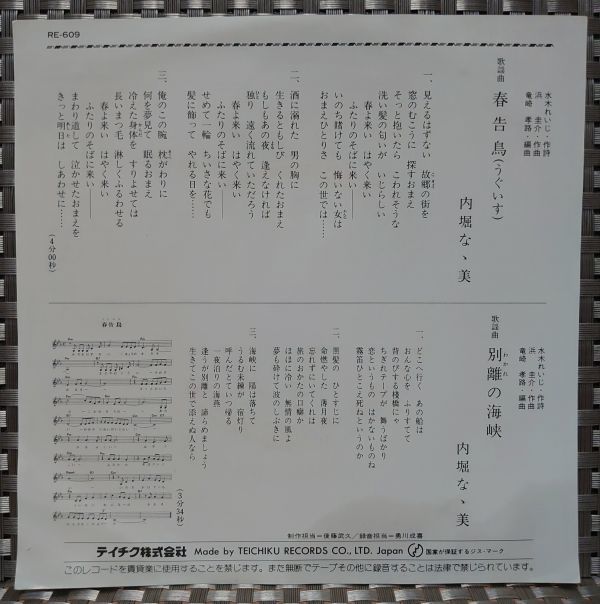 RE-609
歌謡曲
春告鳥(うぐいす)
水木れいじ・作詩
浜 圭介・作曲
竜崎 孝路・編曲
内堀な、美
一、見えるはずない 故郷の街を
窓のむこうに 探すおまえ
そっと抱いたら こわれそうな
洗い髪の匂いが いじらしい
春よ来い はやく来い
ふたりのそばに来い――
いのち賭けても 悔いない女は
おまえひとりさ この世では……
二、酒に溺れた 男の胸に
生きるともしび くれたおまえ
もしもあの夜 逢えなければ
独り 遠く流れていただろう
春よ来い はやく来い
ふたりのそばに来い――
せめて一輪 ちいさな花でも
髪に飾って やれる日を……
三、俺のこの腕 枕がわりに
何を夢見て 眠るおまえ
冷えた身体を すりよせては
長いまつ毛 淋しくふるわせる
春よ来い はやく来い
ふたりのそばに来い――
まわり道して 泣かせたおまえを
きっと明日は しあわせに……
(4分00秒)
歌謡曲
別離の海峡
わかれ
水木れいじ・作詩
浜 圭介・作曲
竜崎 孝路・編曲
内堀な、美
一、どこへ行く あの船は
おんな心を ふりすてて
背のびする桟橋にゃ
ちぎれテープが 舞うばかり
恋というもの はかないものね
霧笛ひとこえ 死ねというのか
二、黒髪の ひとすじに
命燃やした 薄月夜
忘れずにいてくれは
旅のおかたの 口癖か
ほほに冷い 無情の風よ
夢も砕けて 波のしぶきに
三、海峡に 陽は落ちて
うるむ未練が 宿灯り
呼んだとていつ帰る
一夜泊りの 海燕
逢うが別離と 諦らめましょう
生きてこの世で 添えぬ人なら
(3分34秒)
春告鳥
制作担当=後藤武久/録音担当=勇川成喜
テイチク株式会社 Made by TEICHIKU RECORDS CO., LTD. Japan 国家が保証するジス・マーク
このレコードを賃貸業に使用することを禁じます。また無断でテープその他に録音することは法律で禁じられています。